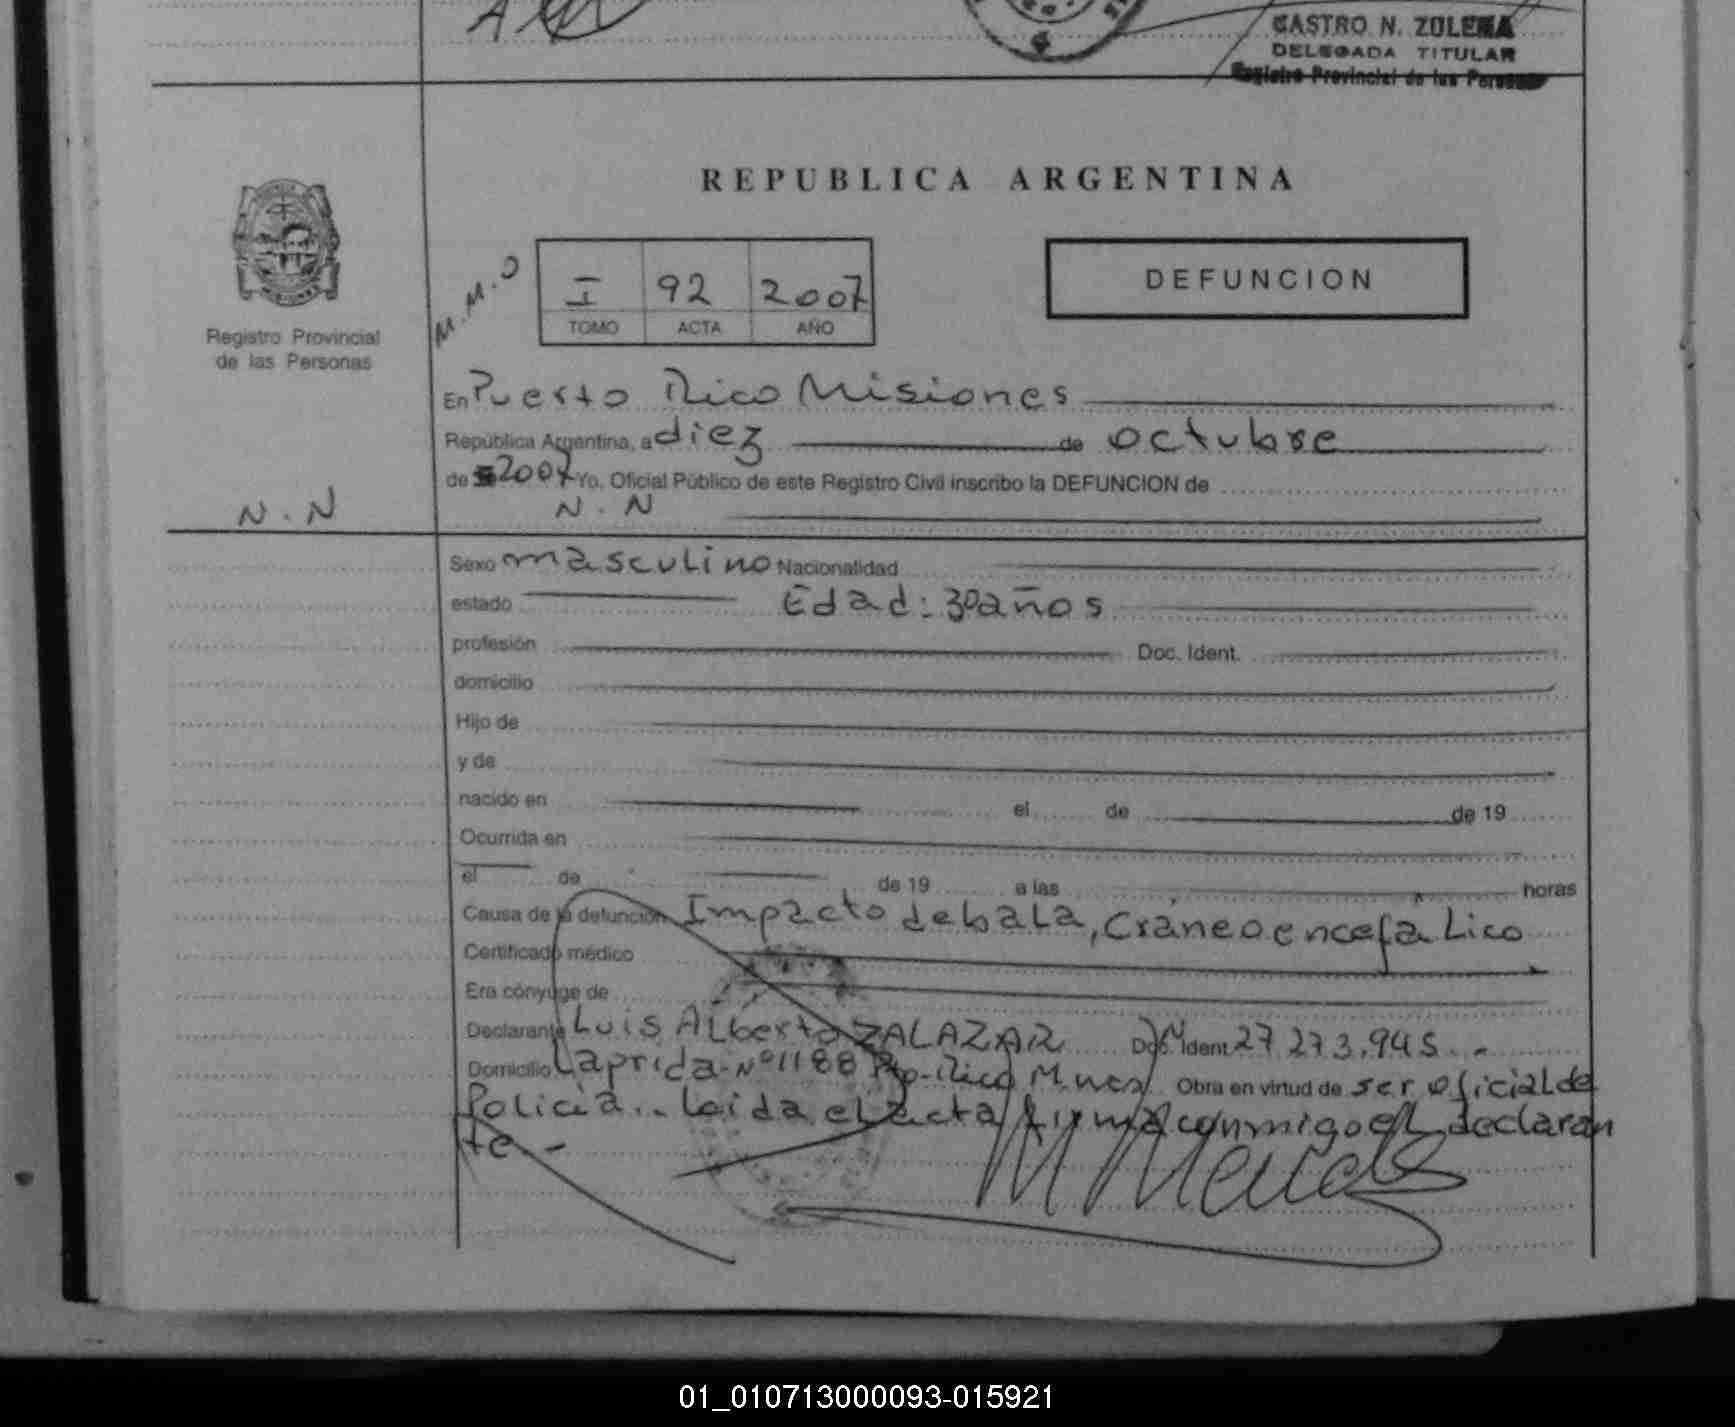 CASTRO N. ZULEMA
DELEGADA TITULAR
Registro Provincial de las Personas
REPUBLICA ARGENTINA
M.M.O
I 92 2007
TOMO ACTA AÑO
DEFUNCION
Registro Provincial
de las Personas
En Puerto Rico Misiones
República Argentina, a diez de octubre
de 2007 Yo, Oficial Público de este Registro Civil inscribo la DEFUNCION de
N.N
N.N
Sexo masculino Nacionalidad
estado Edad: 30 años
profesión Doc. Ident.
domicilio
Hijo de
y de
nacido en el de de 19
Ocurrida en
el de de 19 a las horas
Causa de la defunción Impacto de bala, Cráneo encefálico
Certificado médico
Era cónyuge de
Declarante Luis Alberto ZALAZAR Doc. Ident. 27 273.945.-
Domicilio Laprida Nº 1188 Pto-Rico Mnes Obra en virtud de ser oficial de
Policia.. Leida el acta firma conmigo el declaran
te.-
01_010713000093-015921